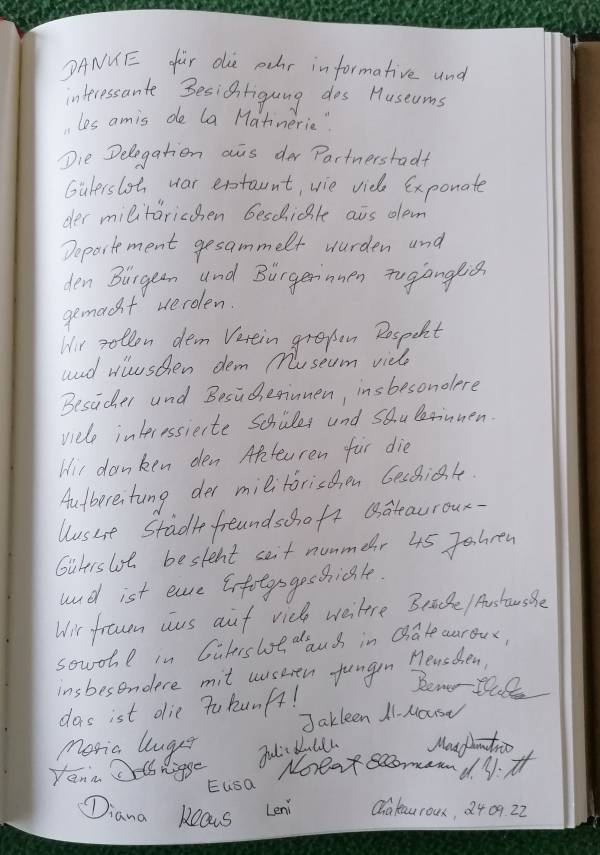 DANKE für die sehr informative und
interessante Besichtigung des Museums
„les amis de la Matinerie“.
Die Delegation aus der Partnerstadt
Gütersloh war erstaunt, wie viele Exponate
der militärischen Geschichte aus dem
Departement gesammelt wurden und
den Bürgern und Bürgerinnen zugänglich
gemacht werden.
Wir zollen dem Verein großen Respekt
und wünschen dem Museum viele
Besucher und Besucherinnen, insbesondere
viele interessierte Schüler und Schülerinnen.
Wir danken den Akteuren für die
Aufbereitung der militärischen Geschichte.
Unsere Städtefreundschaft Châteauroux-
Gütersloh besteht seit nunmehr 45 Jahren
und ist eine Erfolgsgeschichte.
Wir freuen uns auf viele weitere Besuche/Austausche
sowohl in Gütersloh als auch in Châteauroux,
insbesondere mit unseren jungen Menschen,
das ist die Zukunft!
Jakleen Al-Mousa
Maria Unger
Norbert Ellermann
Elisa
Diana Klaus Leni Châteauroux, 24.09.22